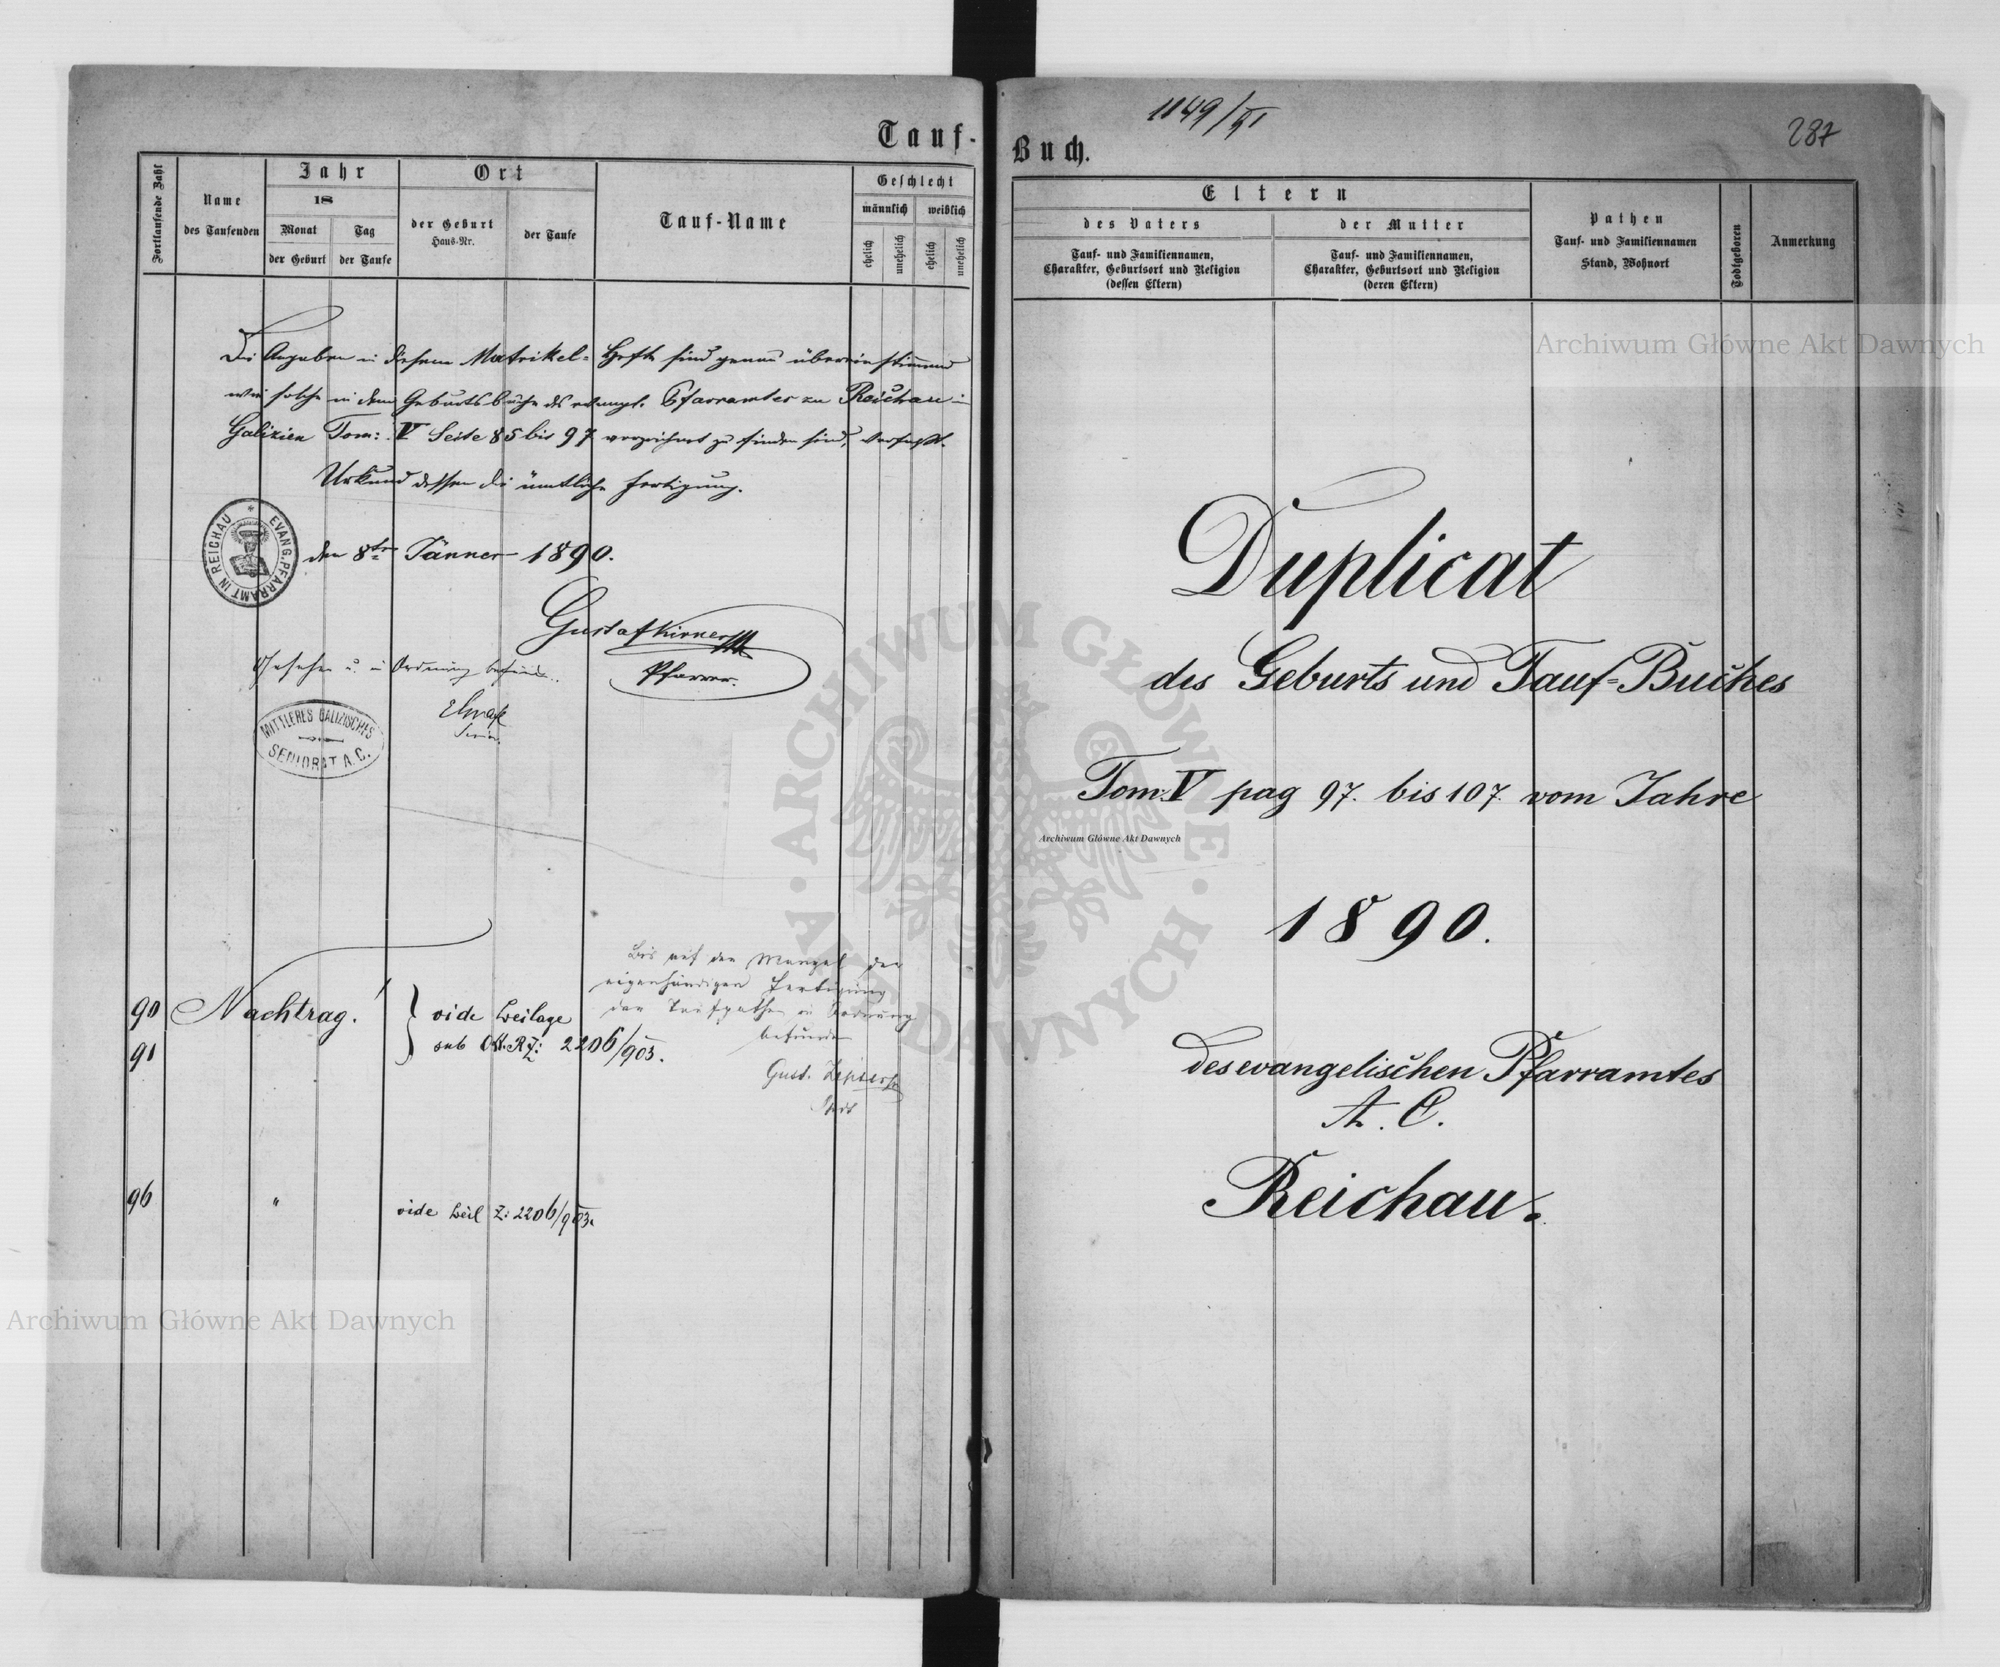 Tauf-
Fortlaufende Zahl
Name
des Taufenden
Jahr
18
Monat
der Geburt
Tag
der Taufe
Ort
der Geburt
Haus-Nr.
der Taufe
Tauf-Name
Geschlecht
männlich
weiblich
ehelich
unehelich
ehelich
unehelich
Die Angaben in diesem Matrikel-Hefte sind genau übereinstimmend
wie solche in dem Geburtsbuche des evangl. Pfarramtes zu Reichau in
Galizien Tom: V Seite 85 bis 97 verzeichnet zu finden sind, verfaßt.
Urkund dessen die ämtliche Fertigung.
EVANG. PFARRAMT IN REICHAU
den 8te Jänner 1890.
Gustaf Kirner
Pfarrer.
Gesehen u. in Ordnung befunden.
MITTLERES GALIZISCHES
SENIORAT A. C.
Bis auf den Mangel der
eigenhändigen Fertigung
der Taufpathen in Ordnung
befunden
Gust.
90 Nachtrag! vide Beilage
91 sub R Z: 2206/903.
96 " vide Beil Z: 2206/903.
1149/91
287
Buch.
Eltern
des Vaters
Tauf- und Familiennamen,
Charakter, Geburtsort und Religion
(dessen Eltern)
der Mutter
Tauf- und Familiennamen,
Charakter, Geburtsort und Religion
(deren Eltern)
Pathen
Tauf- und Familiennamen
Stand, Wohnort
Todtgeboren
Anmerkung
Duplicat
des Geburts und Tauf-Buches
Tom: V pag 97. bis 107. vom Jahre
1890.
des evangelischen Pfarramtes
A. C.
Reichau.
Archiwum Główne Akt Dawnych
Archiwum Główne Akt Dawnych
Archiwum Główne Akt Dawnych
ARCHIWUM GŁÓWNE AKT DAWNYCH